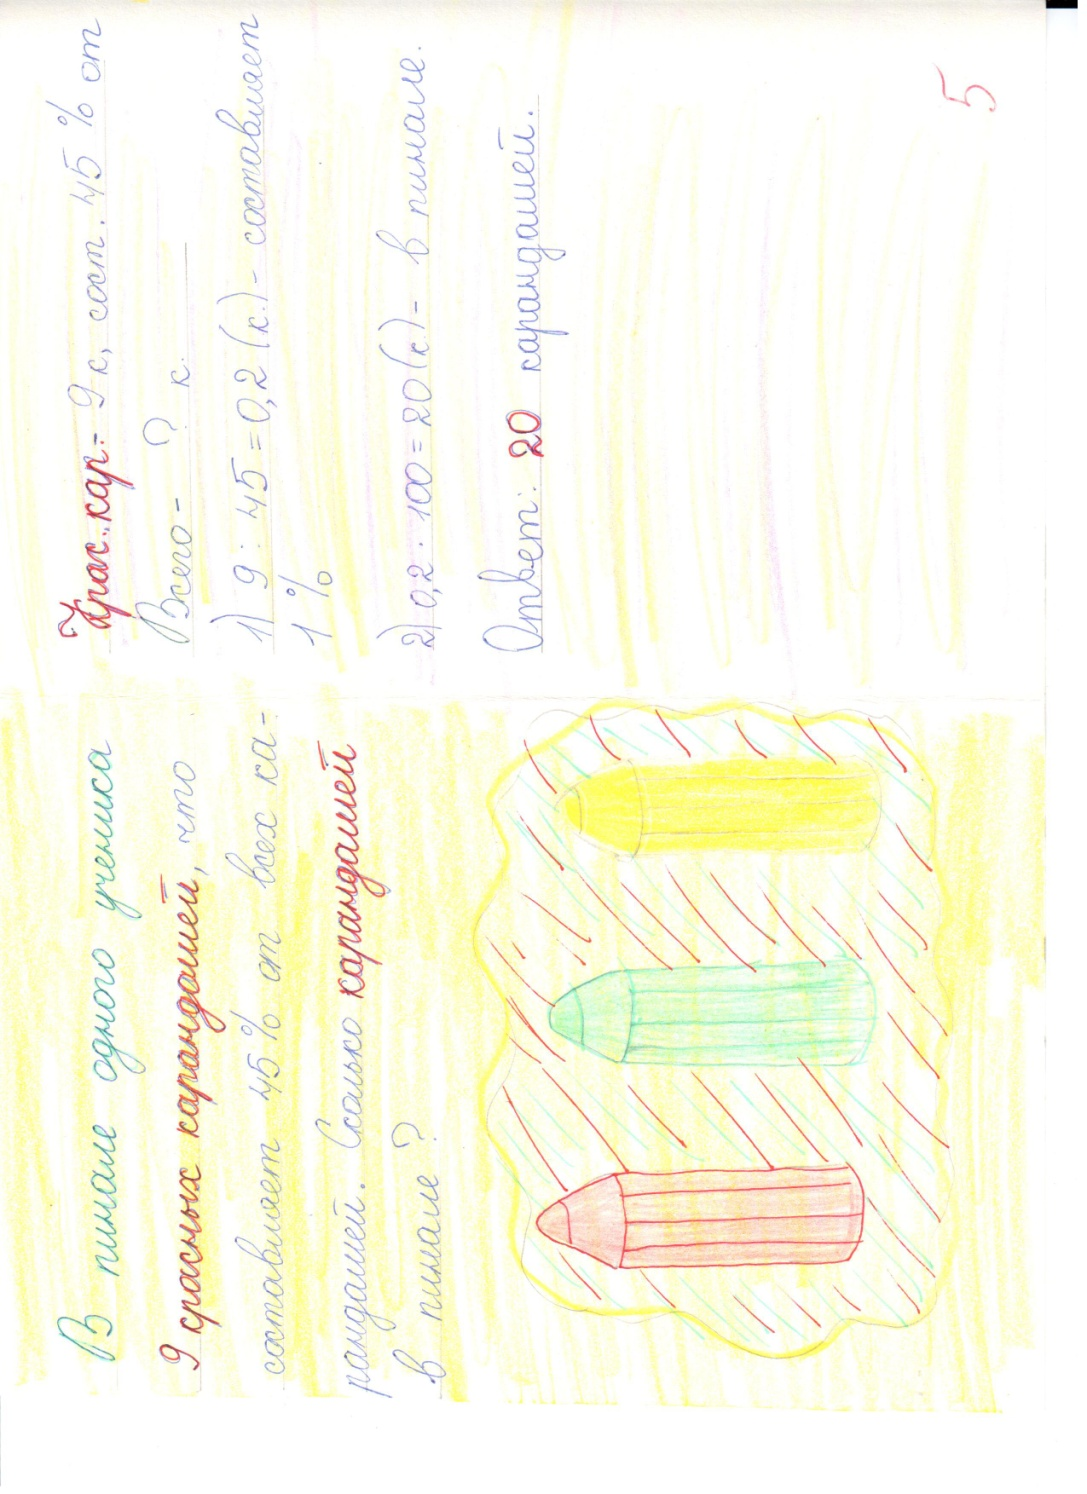 В пинале одного ученика
9 красных карандашей, что
составляет 45 % от всех ка-
рандашей. Сколько карандашей
в пинале ?
Крас. кар. - 9 к, сост. 45 % от
Всего - ? к.
1) 9 : 45 = 0,2 (к.) - составляет
1 %
2) 0,2 · 100 = 20 (к.) - в пинале.
Ответ: 20 карандашей.
5